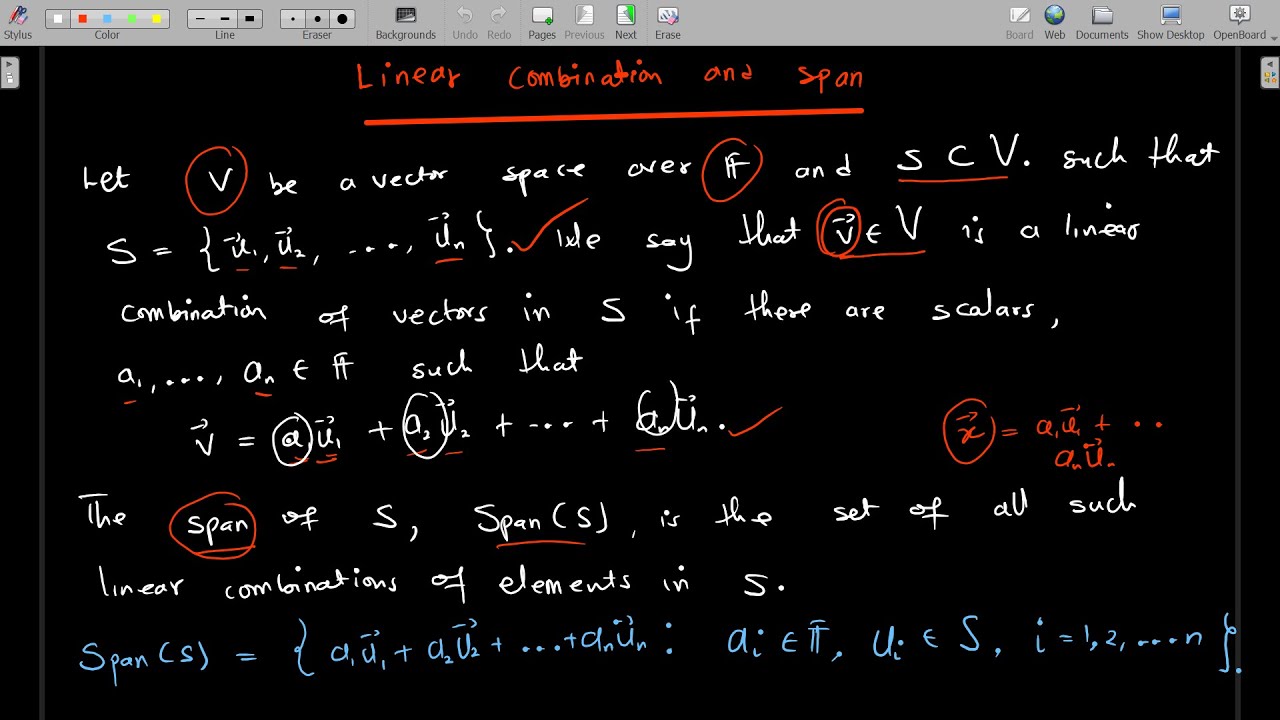 Stylus Color Line Eraser Backgrounds Undo Redo Pages Previous Next Erase Board Web Documents Show Desktop OpenBoard
Linear Combination and span
Let V be a vector space over 𝔽 and S ⊂ V. such that
S = {u⃗₁, u⃗₂, ...., u⃗ₙ}. We say that v⃗ ∈ V is a linear
combination of vectors in S if there are scalars,
a₁, ..., aₙ ∈ 𝔽 such that
v⃗ = a u⃗₁ + a₂ u⃗₂ + ... + aₙ u⃗ₙ.
x⃗ = a₁u⃗₁ + ..
aₙu⃗ₙ
The span of S, Span(S), is the set of all such
linear combinations of elements in S.
Span(S) = { a₁u⃗₁ + a₂u⃗₂ + ... + aₙu⃗ₙ : aᵢ ∈ 𝔽, uᵢ ∈ S, i = 1, 2, .... n }.